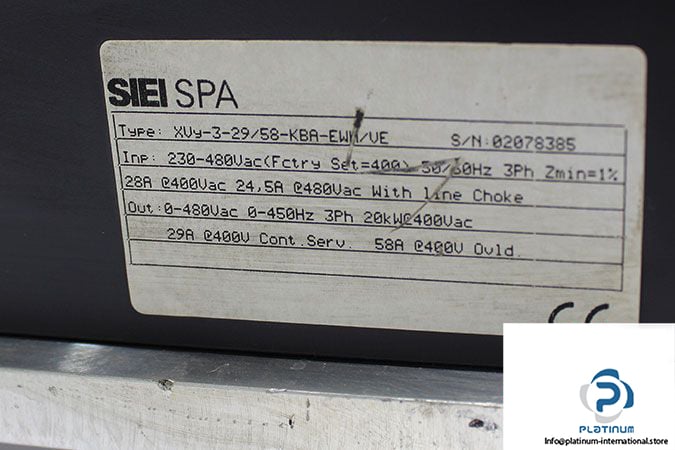 SIEI SPA
Type: XVy-3-29/58-KBA-EWH/VE S/N:02078385
Inp: 230-480Vac(Fctry Set=400) 50/60Hz 3Ph Zmin=1%
28A @400Vac 24,5A @480Vac With line Choke
Out:0-480Vac 0-450Hz 3Ph 20kW@400Vac
29A @400V Cont.Serv. 58A @400V Ovld.
CE
PLATINUM
Info@platinum-international.store